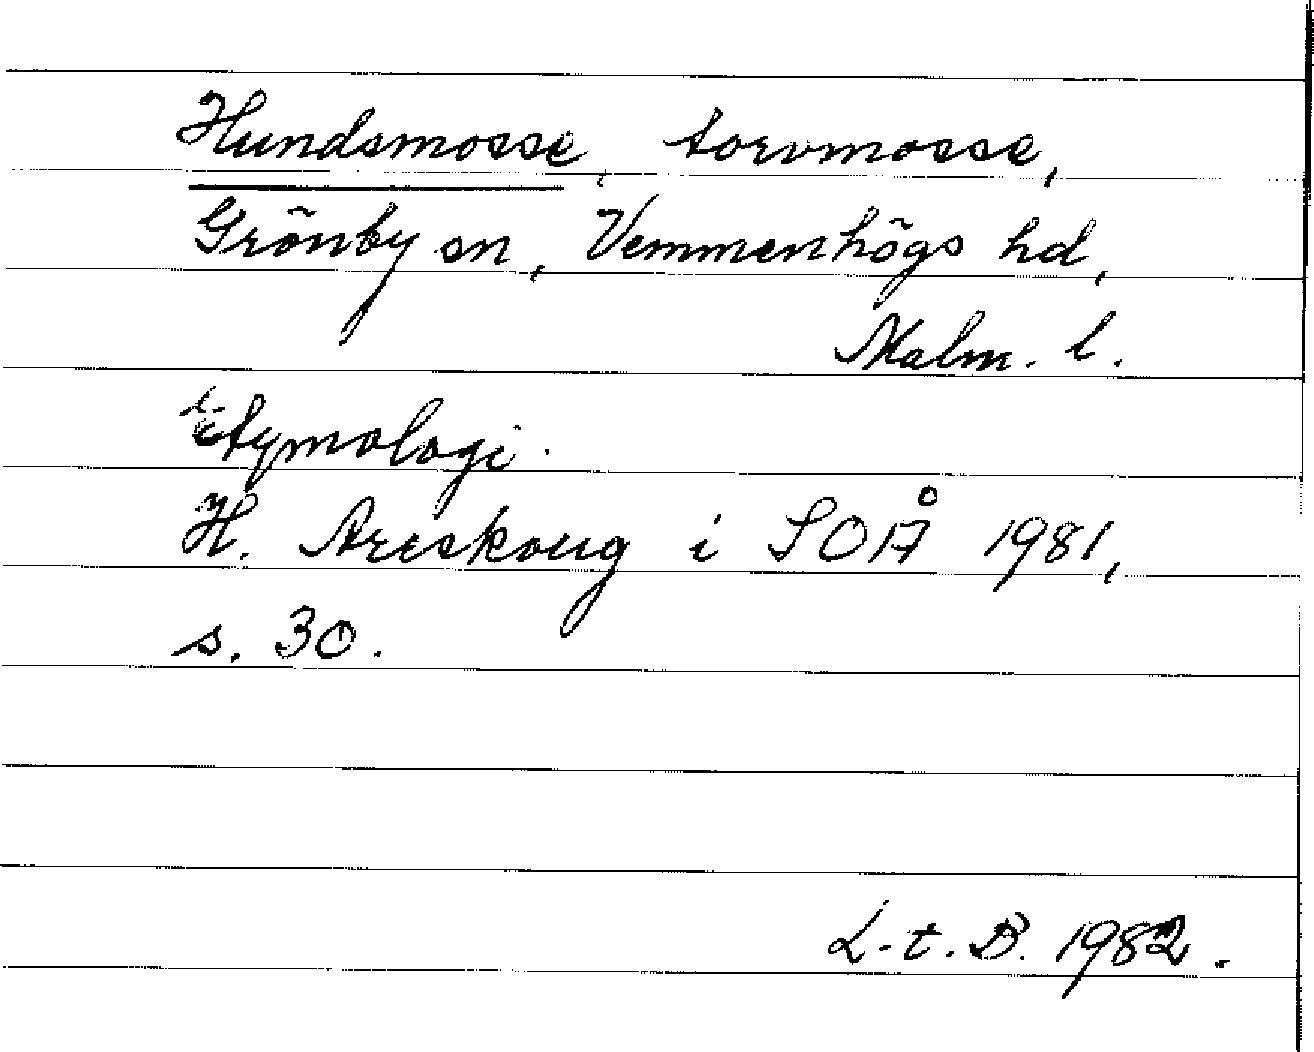 Hundsmosse, torvmosse,
Grönby sn, Vemmenhögs hd,
Malm. l.
Etymologi.
H. Areskoug i SOÅ 1981,
s. 30.
L.t.B. 1982.